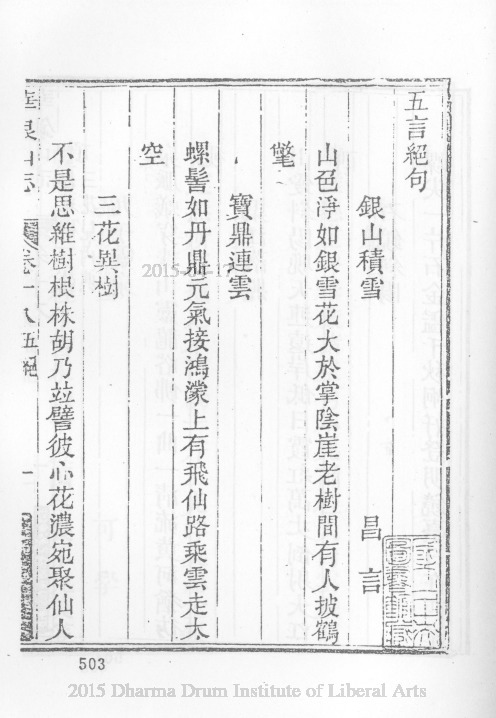 五言絕句
銀山積雪 昌言
山色淨如銀雪花大於掌陰崖老樹間有人披鶴
氅
寶鼎連雲
螺髻如丹鼎元氣接鴻濛上有飛仙路乘雲走太
空
三花異樹
不是思維樹根株胡乃竝譬彼心花濃宛聚仙人
山志 卷十八五絕 一
503
2015 Dharma Drum Institute of Liberal Arts